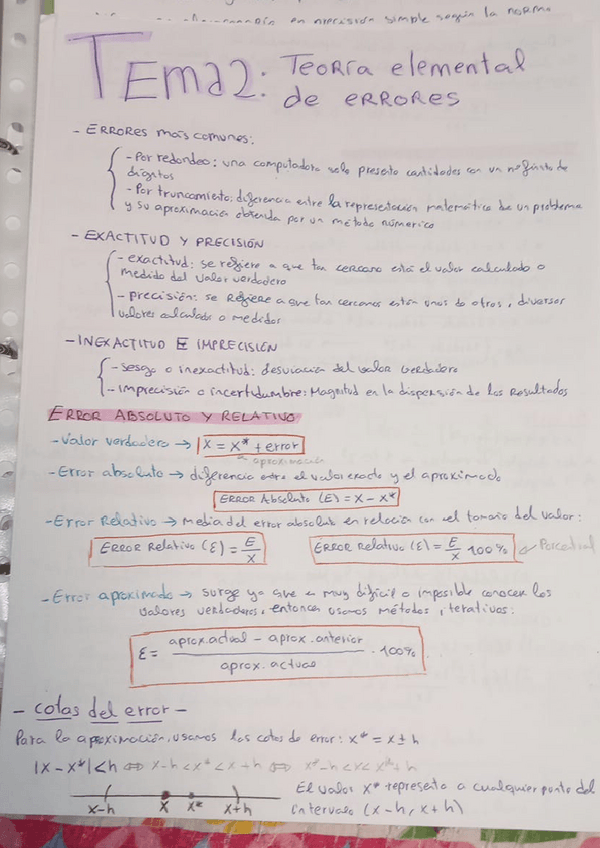 en precisión simple según la norma
Tema 2: Teoría elemental
de errores
- Errores más comunes:
- Por redondeo: una computadora solo presenta cantidades con un nº finito de
dígitos
- Por truncamiento: diferencia entre la representación matemática de un problema
y su aproximación obtenida por un método númerico
- EXACTITUD Y PRECISIÓN
- exactitud: se refiere a que tan cercano está el valor calculado o
medido del valor verdadero
- precisión: se Refiere a que tan cercanos están unos de otros, diversos
valores calculados o medidos
- INEXACTITUD E IMPRECISIÓN
- sesgo o inexactitud: desviación del valor verdadero
- imprecisión o incertidumbre: Magnitud en la dispersión de los Resultados
ERROR ABSOLUTO Y RELATIVO
- Valor verdadero → X = X* + error
aproximación
- Error absoluto → diferencia entre el valor exacto y el aproximado
ERROR Absoluto (E) = X - X*
- Error Relativo → Media del error absoluto en relación con el tamaño del valor:
ERROR Relativo (ε) = E/X ERROR Relativo (ε) = E/X · 100% Porcentual
- Error aproximado → surge ya que es muy difícil o imposible conocer los
valores verdaderos, entonces usamos métodos iterativos:
ε = aprox. actual - aprox. anterior / aprox. actual · 100%
- cotas del error -
Para la aproximación, usamos las cotas de error: x* = x ± h
|x - x*| < h ⇔ x-h < x* < x+h ⇔ x*-h < x < x*+h
x-h x x* x+h
El valor x* representa a cualquier punto del
intervalo (x-h, x+h)